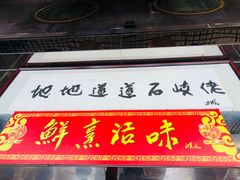 地地道道石岐佬
鲜烹活味